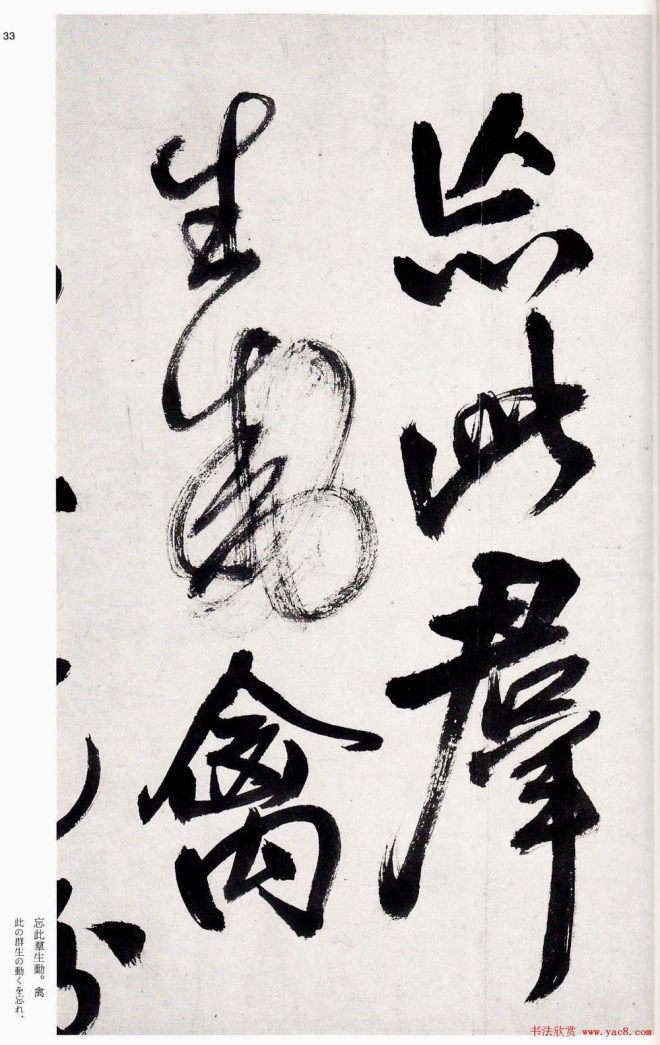 33
忘此羣
生動禽
忘此羣生動。禽
此の群生の動くを忘れ、
书法欣赏 www.yac8.com